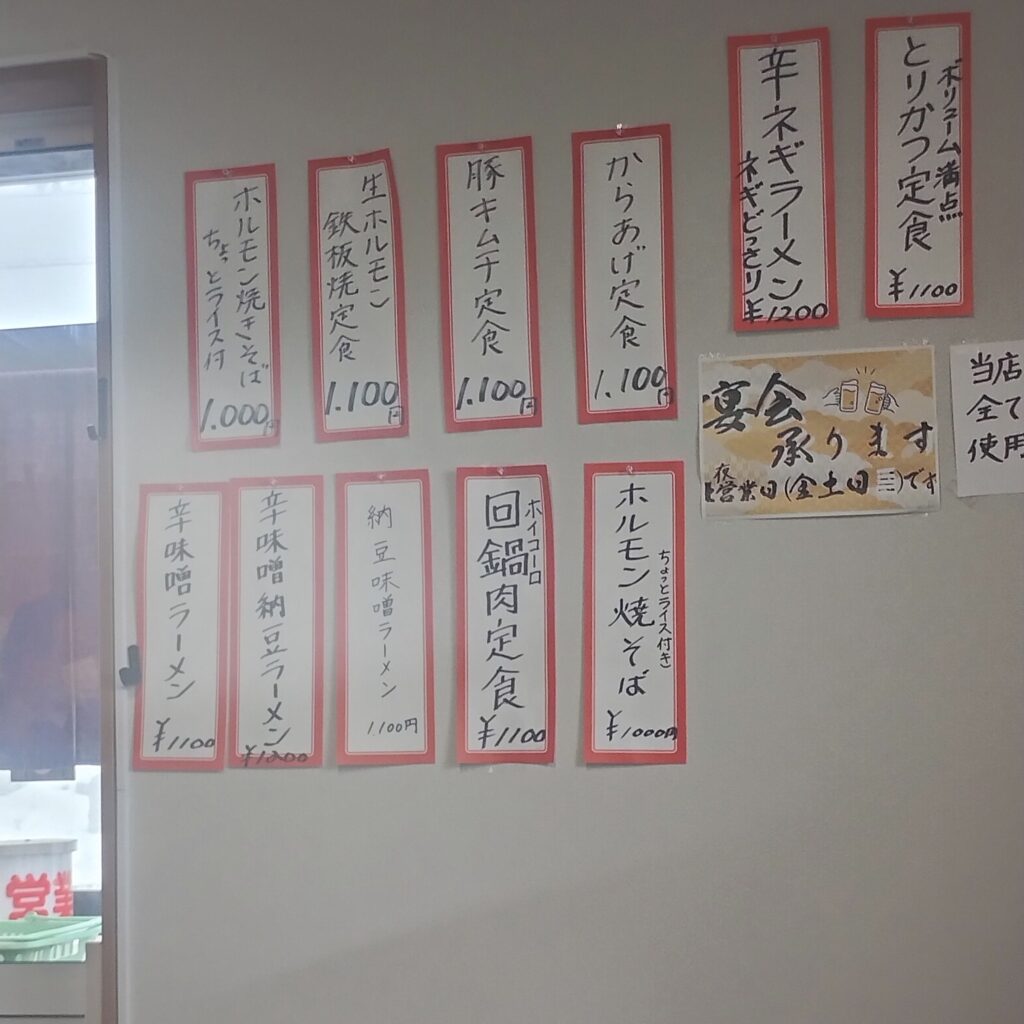 ボリューム満点
とりかつ定食
¥1100
辛ネギラーメン
ネギどっさり
¥1200
からあげ定食
1.100円
豚キムチ定食
1.100円
生ホルモン
鉄板焼定食
1.100円
ホルモン焼きそば
ちょっとライス付
1.000円
当店
全て
使用
宴会
承ります
夜
営業日(金土日)です
ちょっとライス付き
ホルモン焼そば
¥1000円
ホイコーロ
回鍋肉定食
¥1100
納豆味噌ラーメン
1100円
辛味噌納豆ラーメン
¥1200
辛味噌ラーメン
¥1100
営業